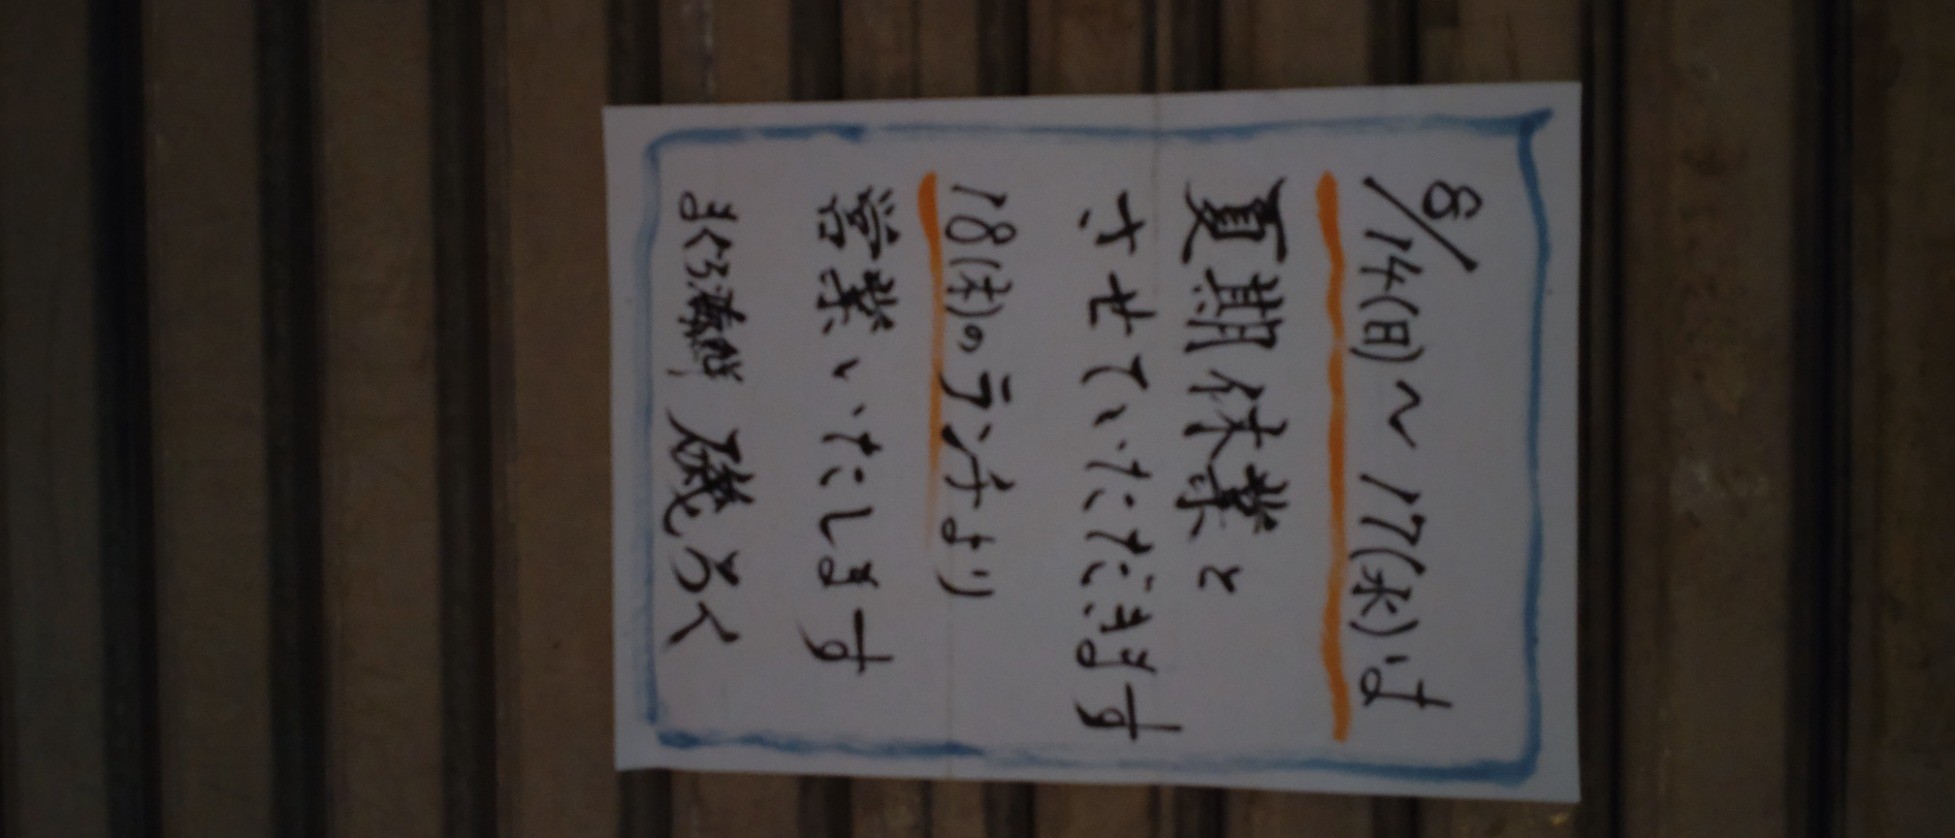 8/14(日)~17(水)は
夏期休業と
させていただきます
18(木)のランチより
営業いたします
まぐろ海鮮 磯ろく